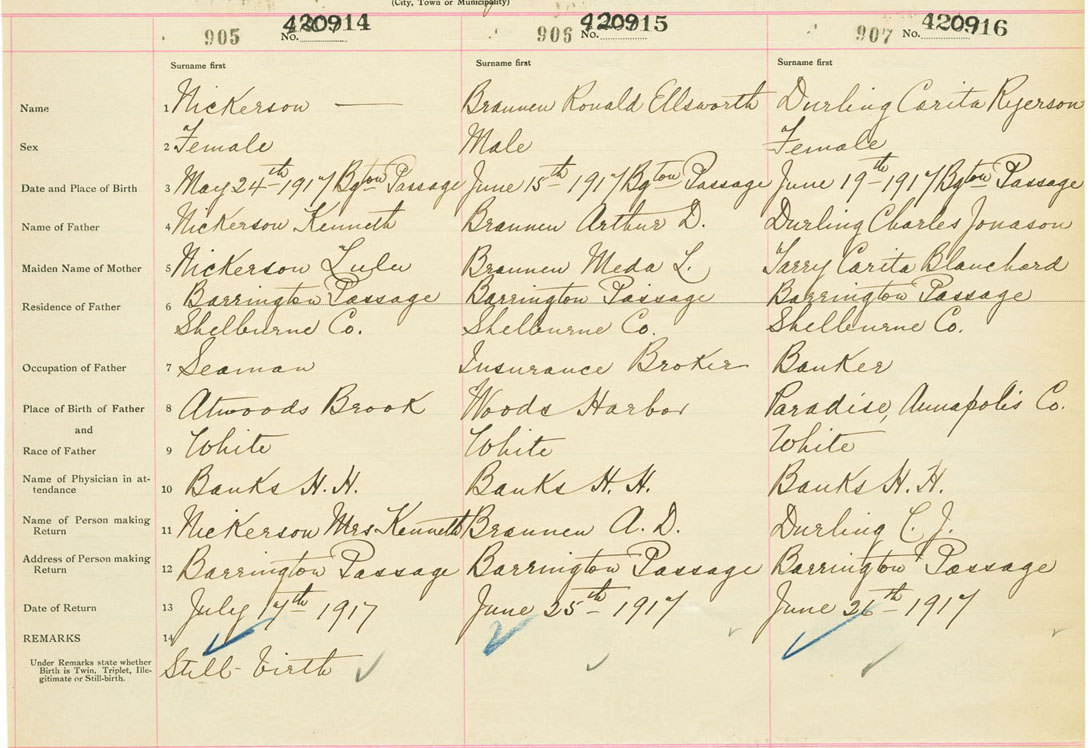 (City, Town or Municipality)
905 No. 420914 906 No. 420915 907 No. 420916
Surname first Surname first Surname first
Name 1 Nickerson — Brannen Ronald Ellsworth Durling Carita Ryerson
Sex 2 Female Male Female
Date and Place of Birth 3 May 24th 1917 Bgton Passage June 15th 1917 Bgton Passage June 19th 1917 Bgton Passage
Name of Father 4 Nickerson Kenneth Brannen Arthur D. Durling Charles Jonason
Maiden Name of Mother 5 Nickerson Lulu Brannen Meda L. Tarry Carita Blanchard
Residence of Father 6 Barrington Passage Barrington Passage Barrington Passage
Shelburne Co. Shelburne Co. Shelburne Co.
Occupation of Father 7 Seaman Insurance Broker Banker
Place of Birth of Father 8 Atwoods Brook Woods Harbor Paradise, Annapolis Co.
and
Race of Father 9 White White White
Name of Physician in at-
tendance 10 Banks H. H. Banks H. H. Banks H. H.
Name of Person making
Return 11 Nickerson Mrs. Kenneth Brannen A. D. Durling C. J.
Address of Person making
Return 12 Barrington Passage Barrington Passage Barrington Passage
Date of Return 13 July 17th 1917 June 25th 1917 June 26th 1917
REMARKS 14
Under Remarks state whether
Birth is Twin, Triplet, Ille-
gitimate or Still-birth. Still-birth